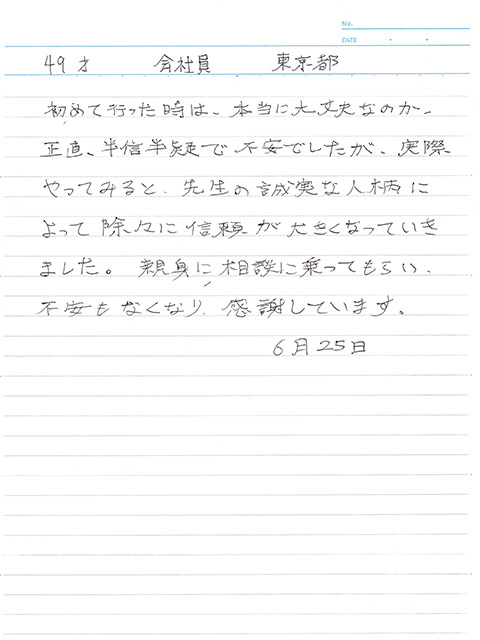 No.
DATE ・ ・
49才 会社員 東京都
初めて行った時は、本当に大丈夫なのか、
正直、半信半疑で不安でしたが、実際
やってみると、先生の誠実な人柄に
よって除々に信頼が大きくなっていき
ました。親身に相談に乗ってもらい、
不安もなくなり、感謝しています。
6月25日